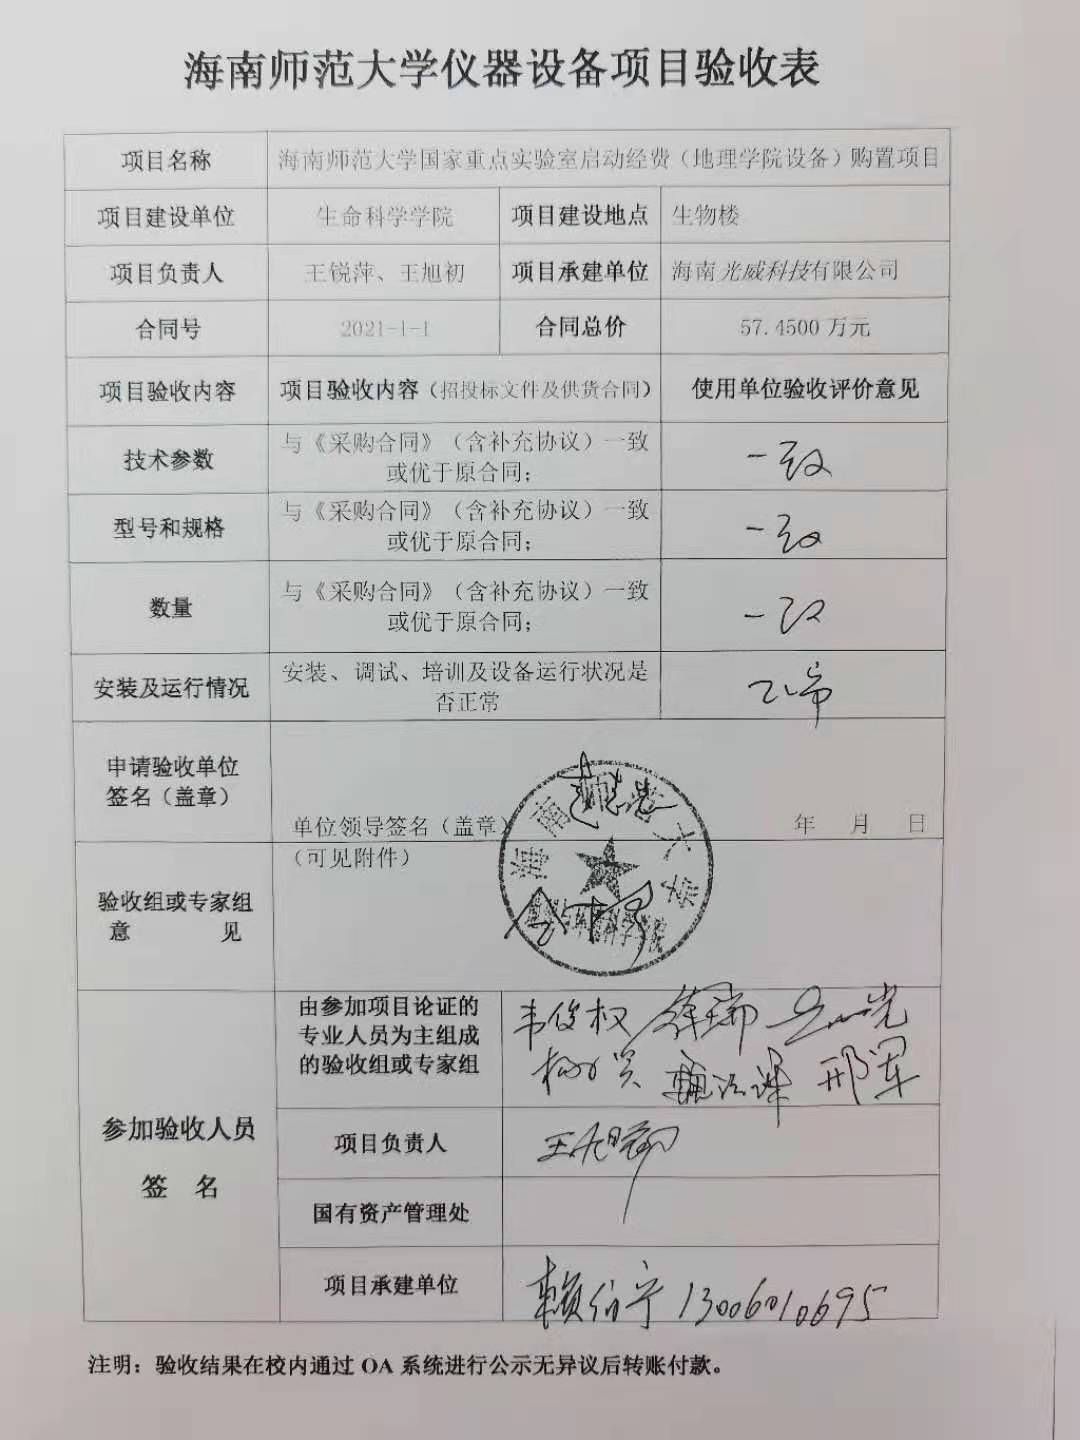 海南师范大学仪器设备项目验收表
项目名称 海南师范大学国家重点实验室启动经费（地理学院设备）购置项目
项目建设单位 生命科学学院 项目建设地点 生物楼
项目负责人 王锐萍、王旭初 项目承建单位 海南光威科技有限公司
合同号 2021-1-1 合同总价 57.4500 万元
项目验收内容 项目验收内容（招投标文件及供货合同） 使用单位验收评价意见
技术参数 与《采购合同》（含补充协议）一致
或优于原合同； 一致
型号和规格 与《采购合同》（含补充协议）一致
或优于原合同； 一致
数量 与《采购合同》（含补充协议）一致
或优于原合同； 一致
安装及运行情况 安装、调试、培训及设备运行状况是
否正常 正常
申请验收单位
签名（盖章）
单位领导签名（盖章） 年 月 日
海南师范大学
验收组或专家组
意 见
（可见附件）
参加验收人员
签 名
由参加项目论证的
专业人员为主组成
的验收组或专家组
韦俊权
邢军
项目负责人 王旭初
国有资产管理处
项目承建单位 赖 13006010695
注明：验收结果在校内通过 OA 系统进行公示无异议后转账付款。